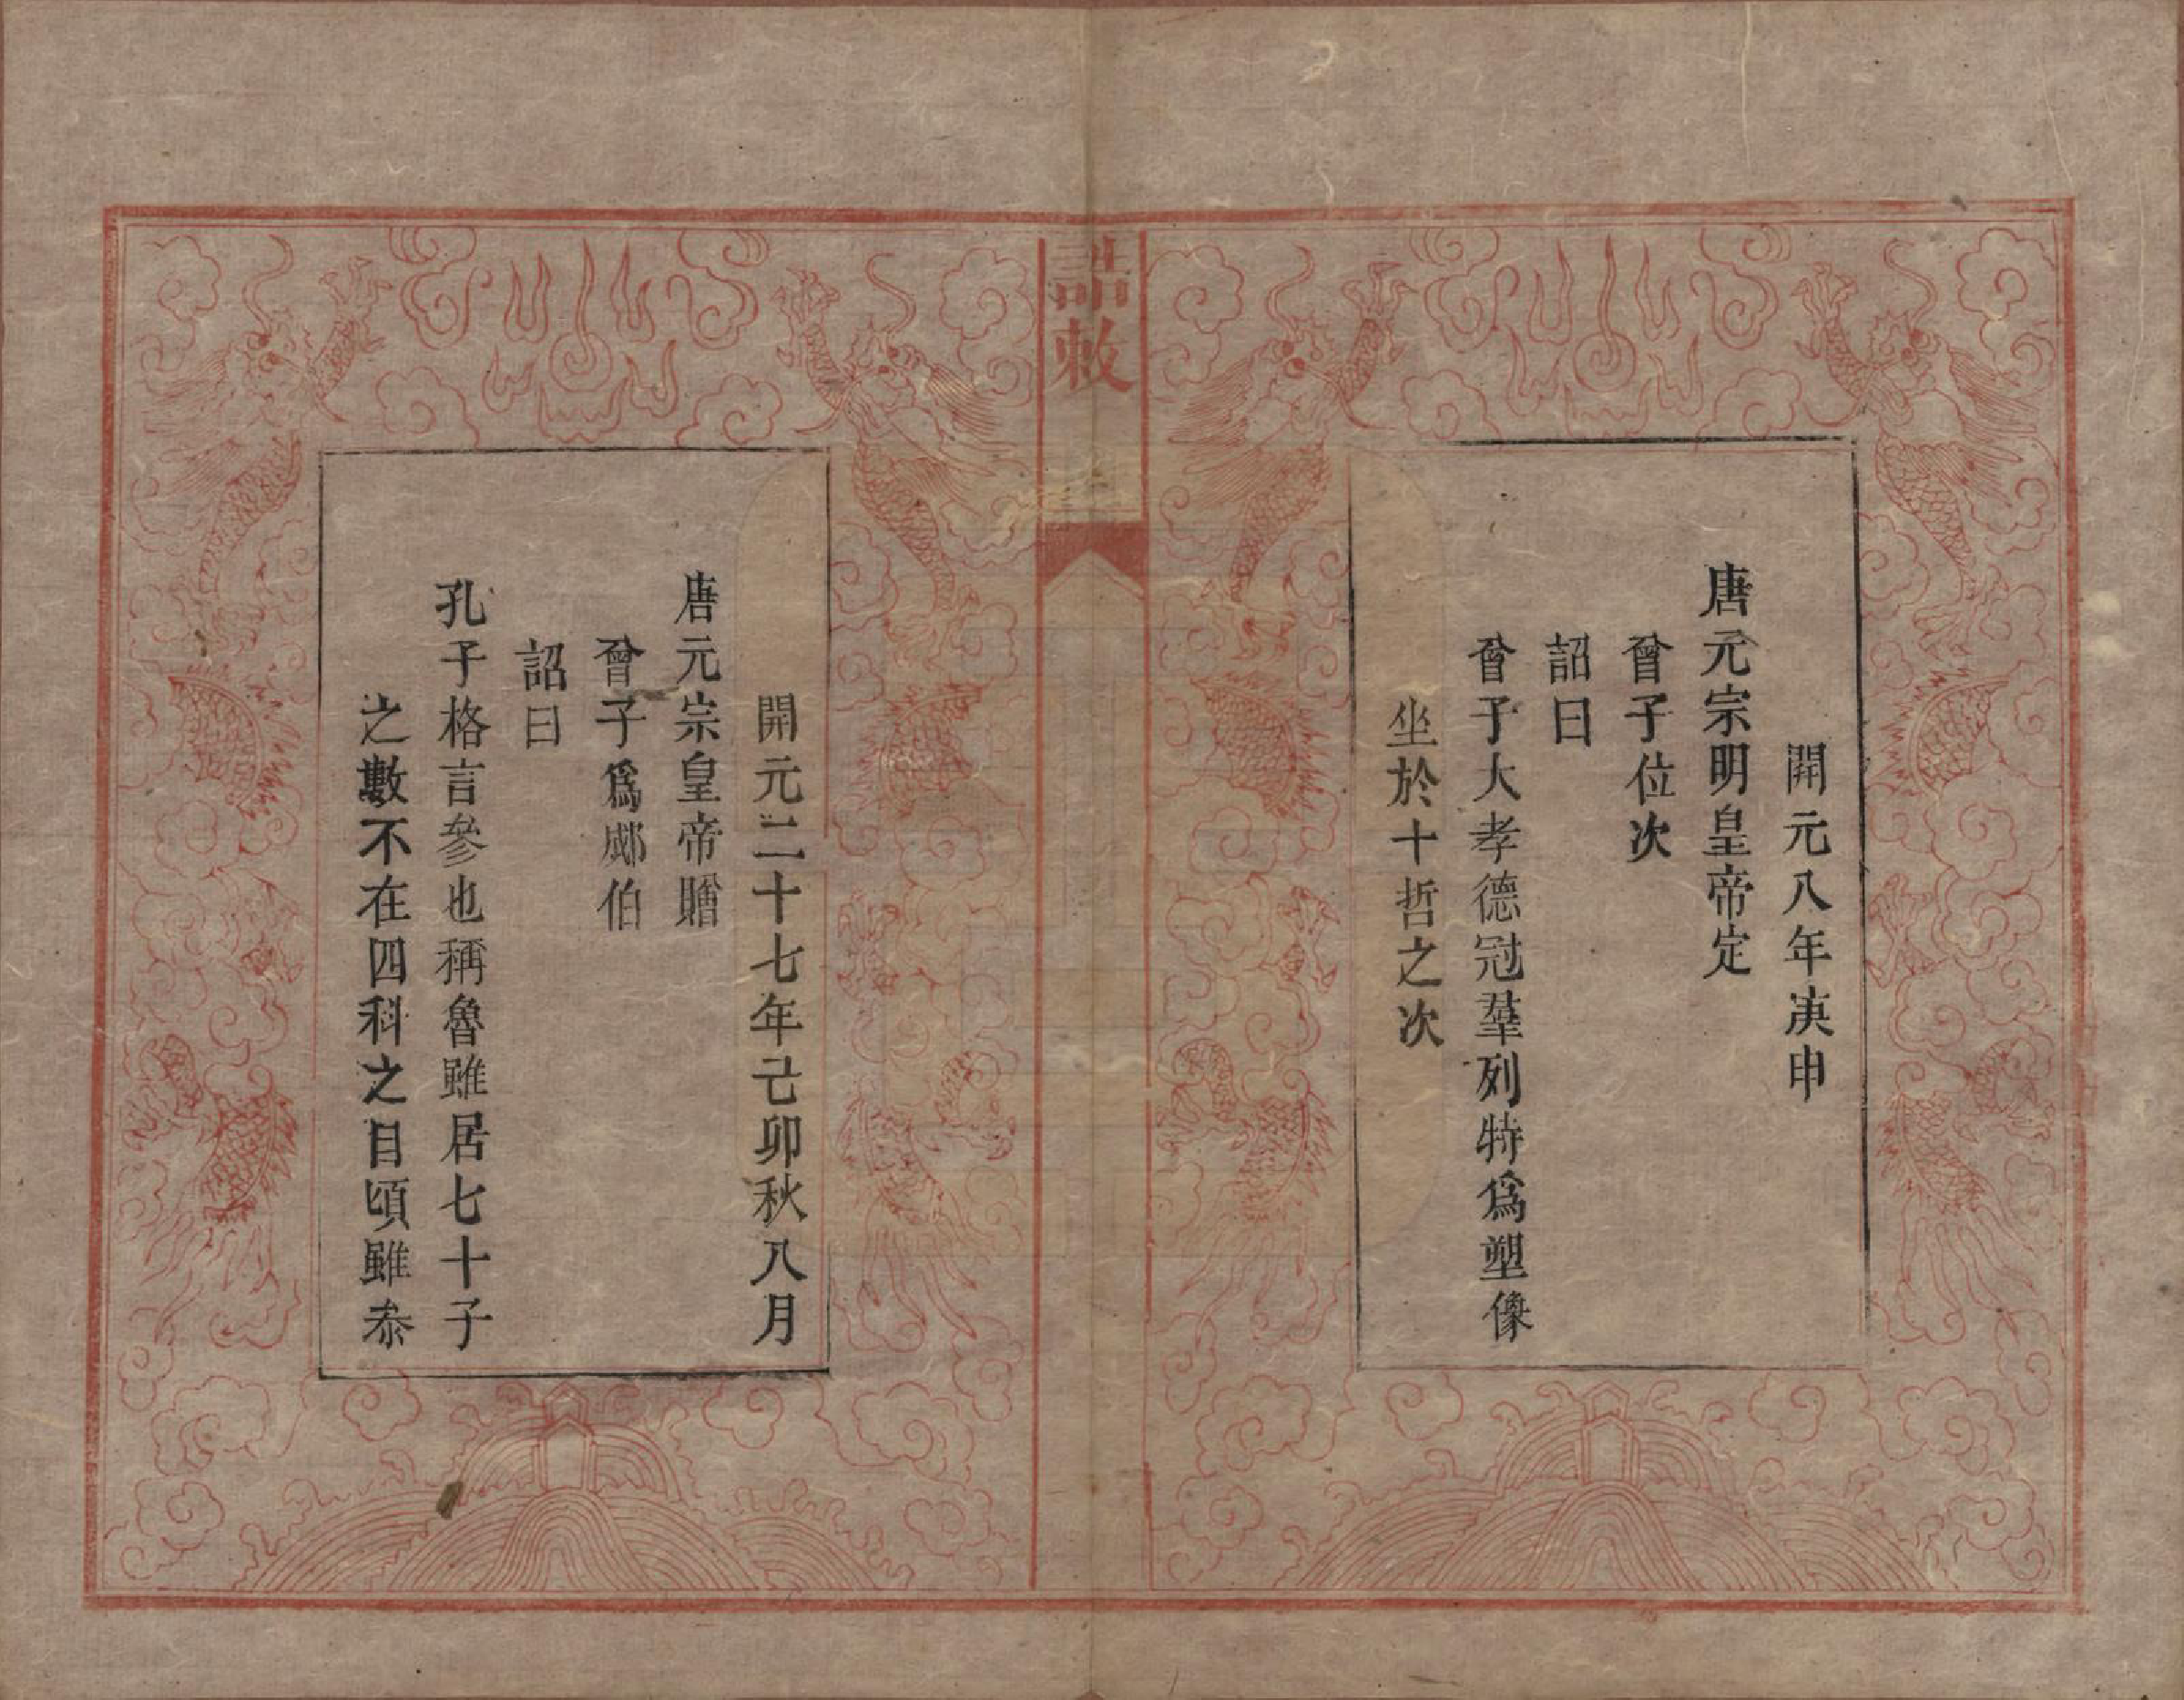 開元八年庚申
唐元宗明皇帝定
曾子位次
詔曰
曾子大孝德冠羣列特爲塑像
坐於十哲之次
誥敕
開元二十七年己卯秋八月
唐元宗皇帝贈
曾子爲郕伯
詔曰
孔子格言參也稱魯雖居七十子
之數不在四科之目頃雖忝